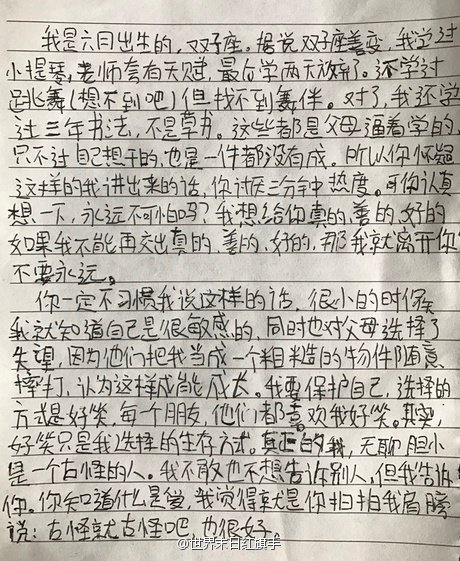 我是六月出生的，双子座。据说双子座善变，我学过
小提琴，老师夸有天赋，最后学两天放弃了。还学过
跳舞（想不到吧）但找不到舞伴。对了，我还学
过三年书法，不是草书。这些都是父母逼着学的，
只不过自己想干的，也是一件都没有成。所以你怀疑
这样的我讲出来的话，你讨厌三分钟热度。可你认真
想一下，永远不可怕吗？我想给你真的、善的、好的
如果我不能再交出真的、善的、好的，那我就离开你
不要永远。
你一定不习惯我说这样的话，很小的时候
我就知道自己是很敏感的，同时也对父母选择了
失望，因为他们把我当成一个粗糙的物件随意
摔打，认为这样成能成长。我要保护自己，选择的
方式是好笑，每一个朋友，他们都喜欢我好笑。其实，
好笑只是我选择的生存方式。真正的我，无聊胆小
是一个古怪的人。我不敢也不想告诉别人，但我告诉
你。你知道什么是爱，我觉得就是你拍拍我肩膀
说：古怪就古怪吧，也很好。
@世界末日红旗手